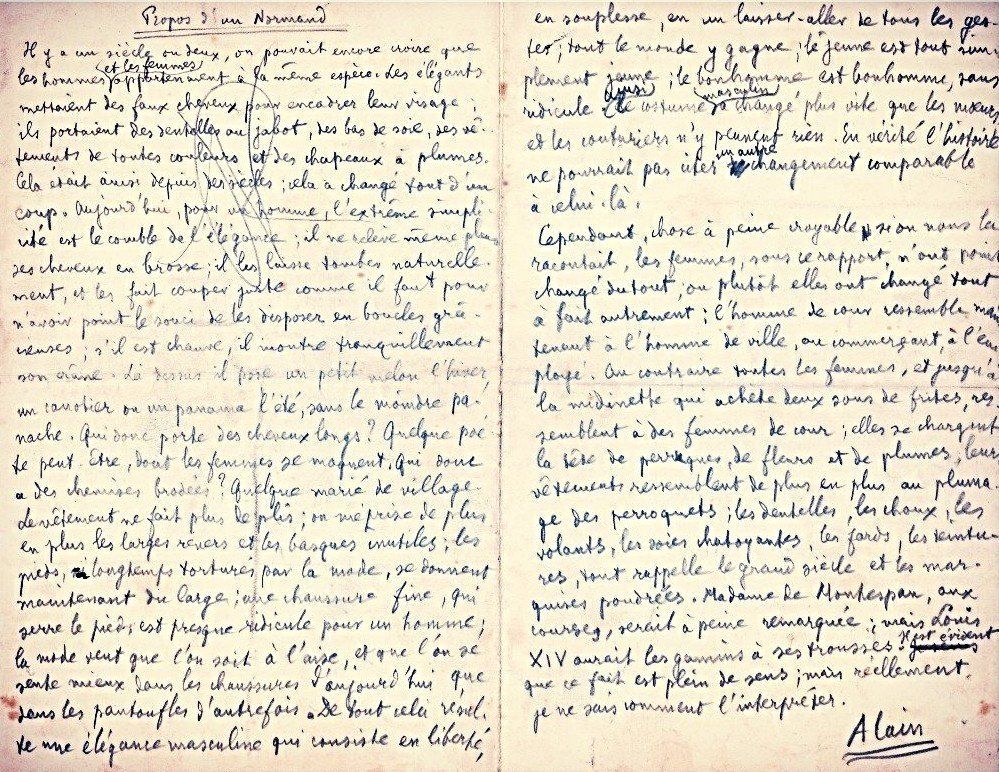 Propos d'un Normand
Il y a un siècle ou deux, on pouvait encore croire que
les hommes et les femmes appartenaient à la même espèce. Les élégants
mettaient des faux cheveux pour encadrer leur visage ;
ils portaient des dentelles au jabot, des bas de soie, des vê-
tements de toutes couleurs et des chapeaux à plumes.
Cela était ainsi depuis des siècles ; cela a changé tout d'un
coup. Aujourd'hui, pour un homme, l'extrême simpli-
cité est le comble de l'élégance ; il ne relève même plus
ses cheveux en brosse ; il les laisse tomber naturelle-
ment, et les fait couper juste comme il faut pour
n'avoir point le souci de les disposer en boucles grâ-
cieuses ; s'il est chauve, il montre tranquillement
son crâne. Là dessus il pose un petit melon l'hiver,
un canotier ou un panama l'été, sans le moindre pa-
nache. Qui donc porte des cheveux longs ? Quelque poè-
te peut-être, dont les femmes se moquent. Qui donc
a des chemises brodées ? Quelque marié de village.
Le vêtement ne fait plus de plis ; on méprise de plus
en plus les larges revers et les basques inutiles ; les
pieds, longtemps torturés par la mode, se donnent
maintenant du large ; une chaussure fine, qui
serre le pied, est presque ridicule pour un homme ;
la mode veut que l'on soit à l'aise, et que l'on se
sente mieux dans les chaussures d'aujourd'hui que
dans les pantoufles d'autrefois. De tout cela résul-
te une élégance masculine qui consiste en liberté,
en souplesse, en un laisser-aller de tous les ges-
tes ; tout le monde y gagne ; le jeune est tout sim-
plement jeune ; le bonhomme est bonhomme, sans
ridicule. Ainsi le costume masculin a changé plus vite que les mœurs
et les couturiers n'y peuvent rien. En vérité l'histoire
ne pourrait pas citer un autre changement comparable
à celui-là.
Cependant, chose à peine croyable si on nous la
racontait, les femmes, sous ce rapport, n'ont point
changé du tout, ou plutôt elles ont changé tout
à fait autrement ; l'homme de cour ressemble main
tenant à l'homme de ville, au commerçant, à l'em
ployé. Au contraire toutes les femmes, et jusqu'à
la midinette qui achète deux sous de frites, res-
semblent à des femmes de cour ; elles se chargent
la tête de perruques, de fleurs et de plumes, leurs
vêtements ressemblent de plus en plus au pluma-
ge des perroquets ; les dentelles, les choux, les
volants, les soies chatoyantes, les fards, les teintu-
res, tout rappelle le grand siècle et les mar-
quises poudrées. Madame de Montespan, aux
courses, serait à peine remarquée ; mais Louis
XIV aurait les gamins à ses trousses. Il est évident
que ce fait est plein de sens ; mais réellement,
je ne sais comment l'interpréter.
Alain